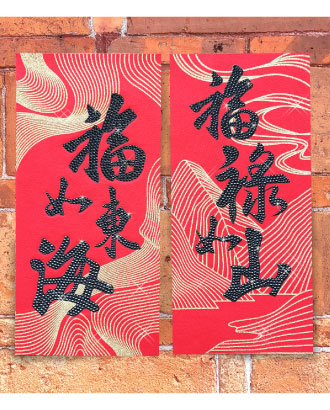 福如東海
福祿如山